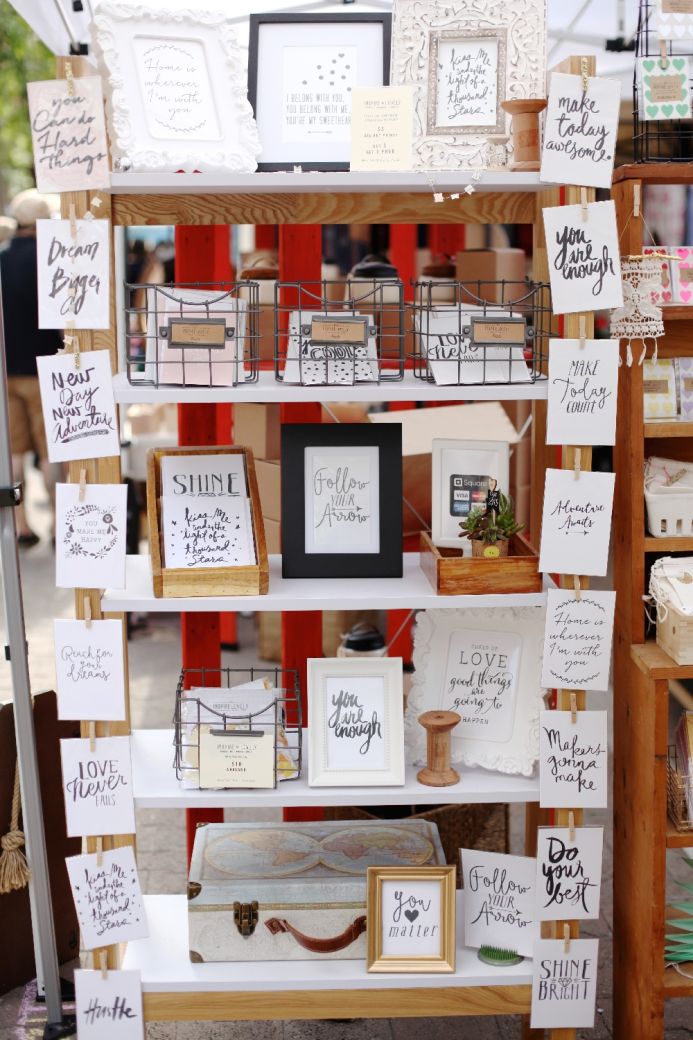 you
Can do
Hard
things
Home is
wherever
I'm with
you
I BELONG WITH YOU,
YOU BELONG WITH ME,
YOU'RE MY SWEETHEART
INSPIRE LOVELY
$5
Kiss Me
under the
light of a
thousand
Stars
make
today
awesome.
Dream
Bigger
you
are
enough
New
Day
New
Adventure
MAKE
Today
COUNT
SHINE
Kiss Me
under the
light of a
thousand
Stars
Follow
YOUR
Arrow
Square
VISA
YOU
MAKE ME
HAPPY
Adventure
Awaits
Reach for
your
dreams
Home is
wherever
I'm with
you
INSPIRE LOVELY
$10
you
are
enough
LOVE
good
things
are
going to
HAPPEN
LOVE
Never
FAILS
Makers
gonna
make
Kiss Me
under the
light of a
thousand
Stars
you
matter
Follow
YOUR
Arrow
Do
your
best
Hustle
SHINE
BRIGHT